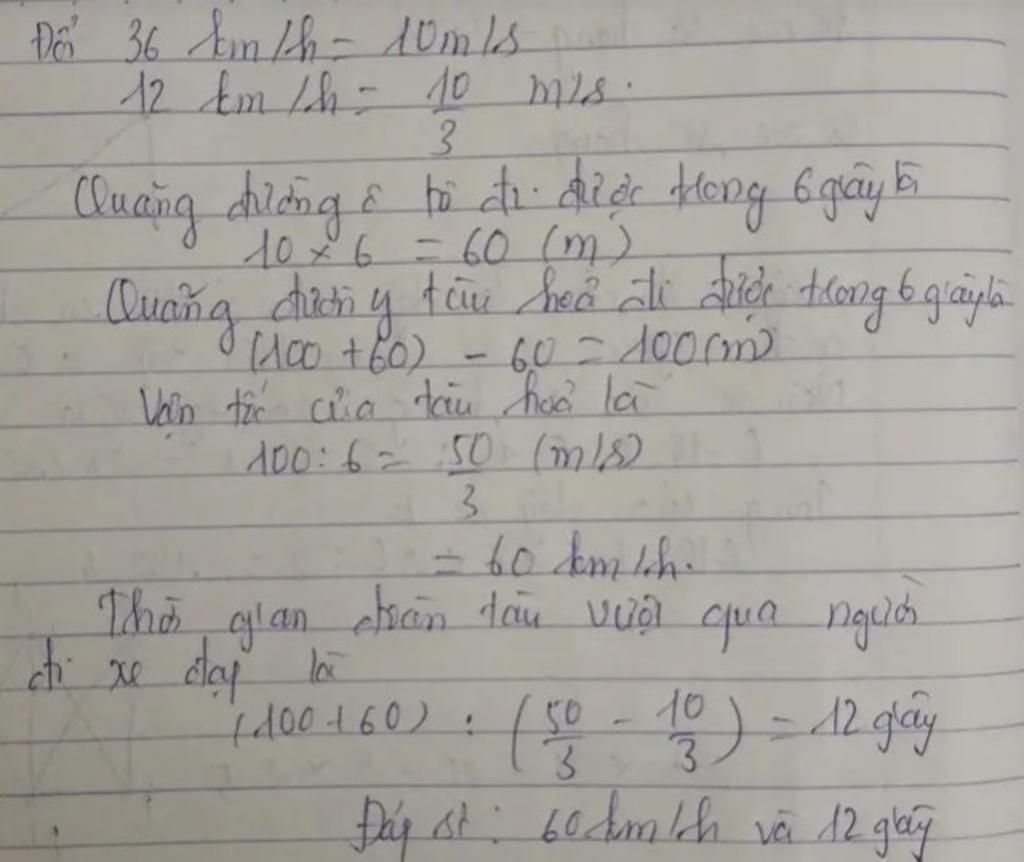 Đổi 36 km/h = 10m/s
12 km/h = 10/3 m/s.
Quãng đường ô tô đi được trong 6 giây là
10 × 6 = 60 (m)
Quãng đường tàu hoả đi được trong 6 giây là
(100 + 60) - 60 = 100(m)
Vận tốc của tàu hoả là
100 : 6 = 50/3 (m/s)
= 60 km/h.
Thời gian đoàn tàu vượt qua người
đi xe đạp là
(100 + 60) : (50/3 - 10/3) = 12 giây
Đáp số: 60 km/h và 12 giây